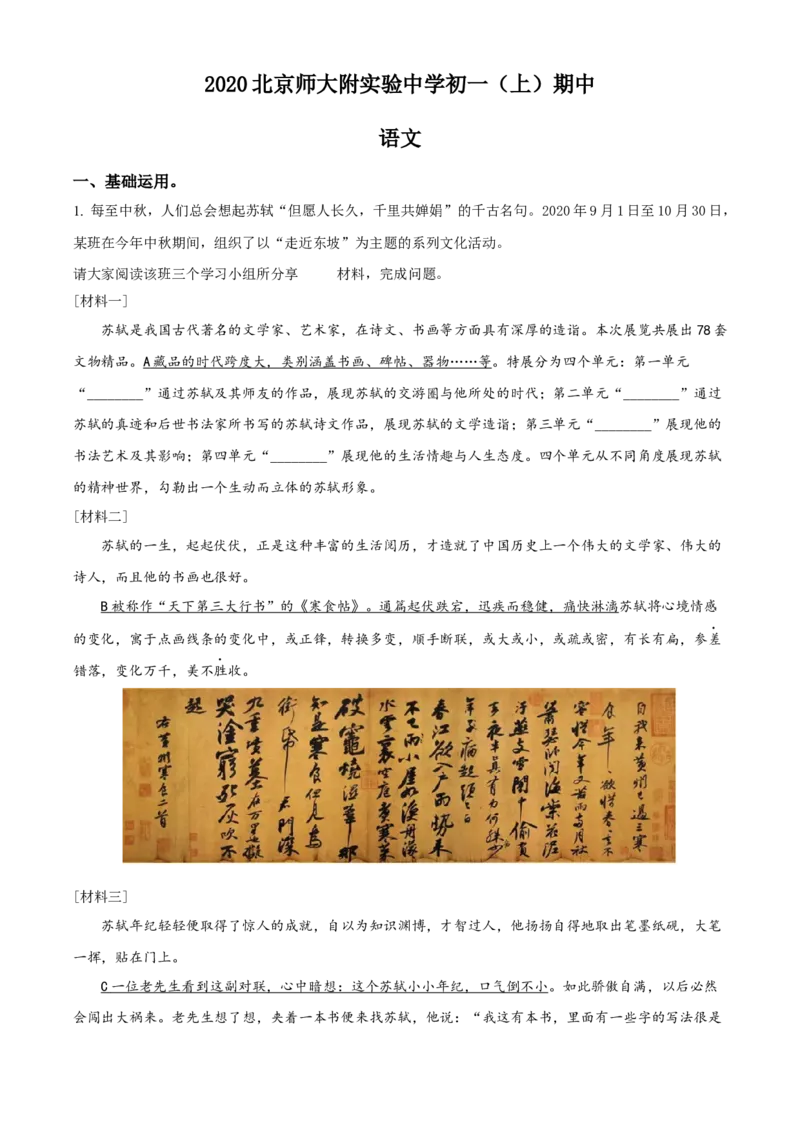 2020北京师大附实验中学初一（上）期中
语文
一、基础运用。
1. 每至中秋，人们总会想起苏轼“但愿人长久，千里共婵娟”的千古名句。2020年9月1日至10月30日，
某班在今年中秋期间，组织了以“走近东坡”为主题的系列文化活动。
请大家阅读该班三个学习小组所分享 材料，完成问题。
[材料一]
苏轼是我国古代著名的文学家、艺术家，在诗文、书画等方面具有深厚的造诣。本次展览共展出78套
文物精品。A藏品的时代跨度大，类别涵盖书画、碑帖、器物……等。特展分为四个单元：第一单元
“________”通过苏轼及其师友的作品，展现苏轼的交游圈与他所处的时代；第二单元“________”通过
苏轼的真迹和后世书法家所书写的苏轼诗文作品，展现苏轼的文学造诣；第三单元“________”展现他的
书法艺术及其影响；第四单元“________”展现他的生活情趣与人生态度。四个单元从不同角度展现苏轼
的精神世界，勾勒出一个生动而立体的苏轼形象。
[材料二]
苏轼的一生，起起伏伏，正是这种丰富的生活阅历，才造就了中国历史上一个伟大的文学家、伟大的
诗人，而且他的书画也很好。
B被称作“天下第三大行书”的《寒食帖》。通篇起伏跌宕，迅疾而稳健，痛快淋漓苏轼将心境情感
的变化，寓于点画线条的变化中，或正锋，转换多变，顺手断联，或大或小，或疏或密，有长有扁，参差
错落，变化万千，美不胜收。
自我來黃州已過三寒
食年〻欲惜春〻去不
容惜今年又苦雨兩月秋
蕭瑟卧聞海棠花泥
汙燕支雪闇中偷負
去夜半真有力何殊少
年子病起頭已白
春江欲入户雨勢來
不已雨小屋如漁舟濛〻
水雲裏空庖煮寒菜
破竈燒濕葦那
知是寒食但見烏
銜帋君門深
九重墳墓在万里也擬
哭塗窮死灰吹不
起
右黃州寒食二首
[材料三]
苏轼年纪轻轻便取得了惊人的成就，自以为知识渊博，才智过人，他扬扬自得地取出笔墨纸砚，大笔
一挥，贴在门上。
C一位老先生看到这副对联，心中暗想：这个苏轼小小年纪，口气倒不小。如此骄傲自满，以后必然
会闯出大祸来。老先生想了想，夹着一本书便来找苏轼，他说：“我这有本书，里面有一些字的写法很是